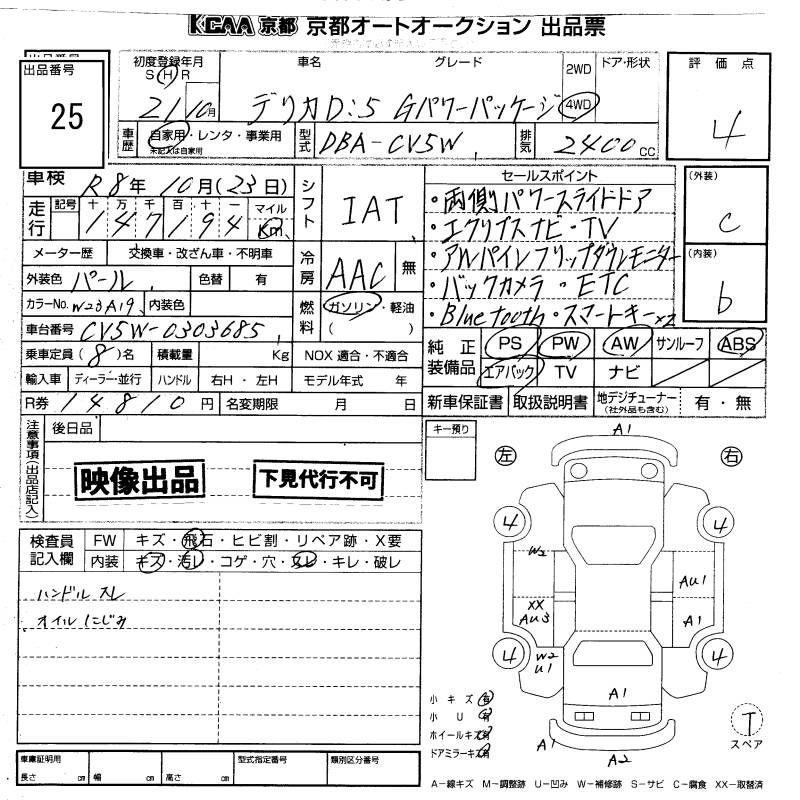 KCAA 京都 京都オートオークション 出品票
出品番号
25
初度登録年月
S H R
21 10月
車名 グレード
デリカD:5 Gパワーパッケージ
2WD
4WD
ドア・形状
評価点
4
車歴
自家用・レンタ・事業用
未記入は自家用
型式
DBA-CV5W
排気
2400 CC
車検 R8年10月(23日)
走行
記号 十 万 千 百 十 一 マイル
147194 Km
シフト
IAT
セールスポイント
・両側パワースライドドア
・エクリプスナビ・TV
・アルパインフリップダウンモニター
・バックカメラ・ETC
・Bluetooth・スマートキー×2
(外装)
c
(内装)
b
メーター歴 交換車・改ざん車・不明車
外装色 パール 色替 有
カラーNo. W23A19 内装色
冷房
AAC 無
燃料
ガソリン・軽油
( )
車台番号 CV5W-0303685
乗車定員 (8)名 積載量 Kg NOX 適合・不適合
輸入車 ディーラー・並行 ハンドル 右H・左H モデル年式 年
純正装備品
PS PW AW サンルーフ ABS
エアバック TV ナビ
R券 14810円 名変期限 月 日
新車保証書 取扱説明書 地デジチューナー 有・無
(社外品も含む)
注意事項(出品店記入)
後日品
映像出品
下見代行不可
キー預り
A1
左
右
検査員記入欄
FW キズ・飛石・ヒビ割・リペア跡・X要
内装 キズ・汚レ・コゲ・穴・スレ・キレ・破レ
ハンドル スレ
オイルにじみ
4
4
W2
AU1
XX
AU3
A1
4
4
W2
U1
A1
小キズ 有
小U 有
ホイールキズ 有
ドアミラーキズ 有
A1
A2
T
スペア
車庫証明用
長さ cm 幅 cm 高さ cm
型式指定番号
類別区分番号
A-線キズ M-調整跡 U-凹み W-補修跡 S-サビ C-腐食 XX-取替済